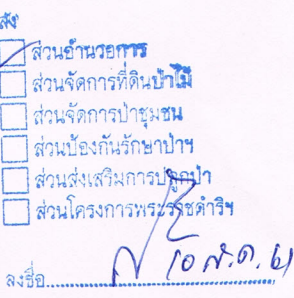 ส่ง
ส่วนอำนวยการ
ส่วนจัดการที่ดินป่าไม้
ส่วนจัดการป่าชุมชน
ส่วนป้องกันรักษาป่าฯ
ส่วนส่งเสริมการปลูกป่า
ส่วนโครงการพระราชดำริฯ
ลงชื่อ